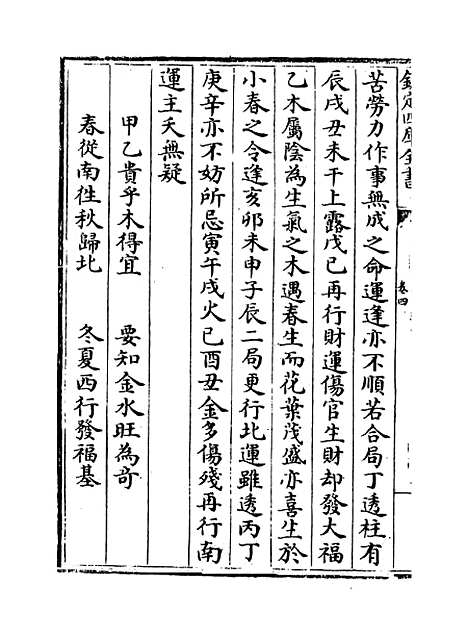 欽定四庫全書
卷四
苦勞力作事無成之命運逢亦不順若合局丁透柱有
辰戌丑未干上露戊己再行財運傷官生財却發大福
乙木屬陰為生氣之木遇春生而花葉茂盛亦喜生於
小春之令逢亥卯未申子辰二局更行北運雖透丙丁
庚辛亦不妨所忌寅午戌火巳酉丑金多傷殘再行南
運主夭無疑
甲乙貴乎木得宜　要知金水旺為竒
春從南徃秋歸北　冬夏西行發福基